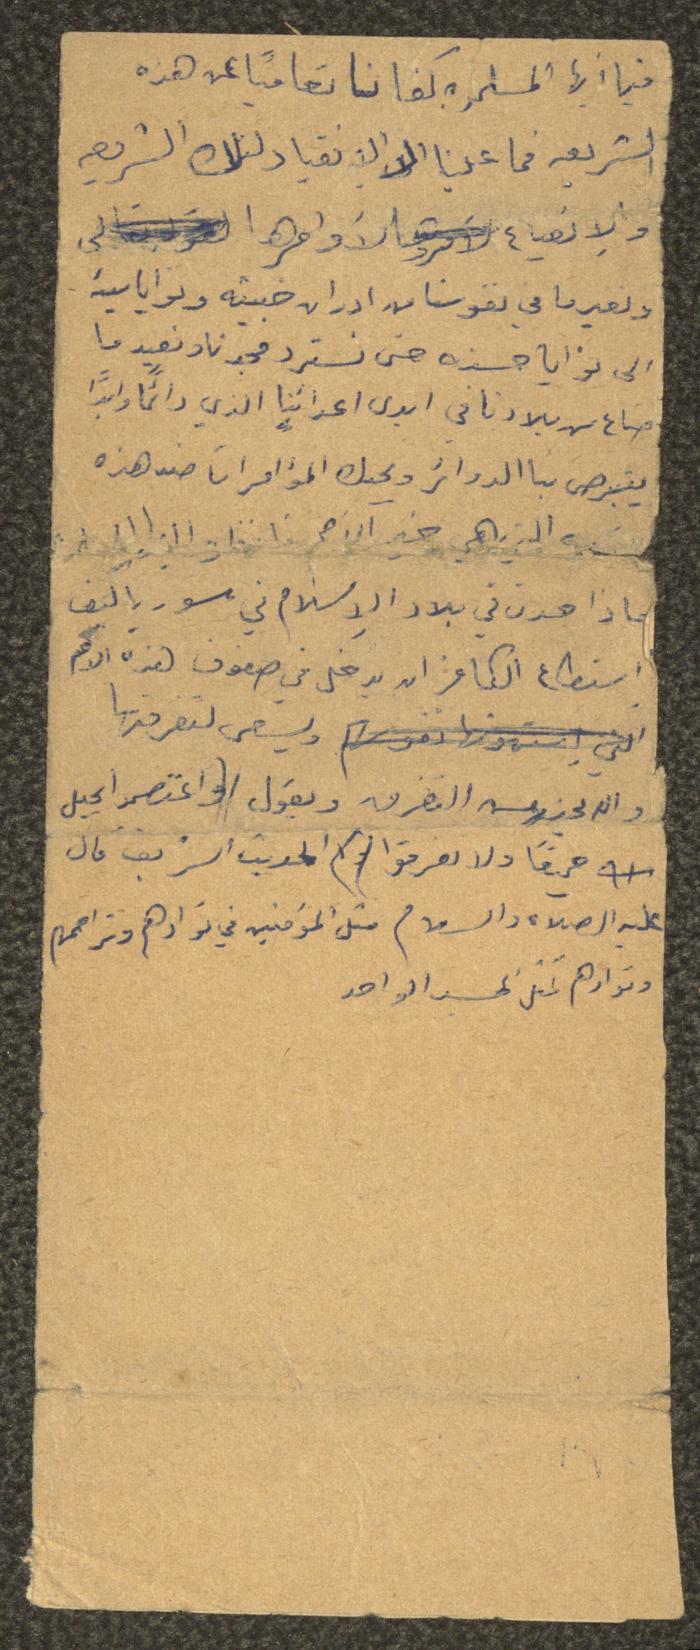 فيا أيها المسلمون كفانا تعاميًا عن هذه
الشريعه فما علينا الا الانقياد لتلك الشريعه
والانصياع لأوامرها
ونغير ما في نفوسنا من ادران خبيثه ونوايا سيئة
الى نوايا حسنه حتى نسترد مجدنا ونعيد ما
ضاع من بلادنا في ايدي اعدائنا الذي دائمًا وابدًا
يتبرص بنا الدوائر ويحيك المؤامرات ضد هذه
التي هي خير الأمم
ماذا حدث في بلاد الإسلام في سوريا كيف
استطاع الكافر ان يدخل في صفوف هذه الامم
ويسعى لتفرقتها
والله يحذر من التفرق ويقول ((واعتصموا بحبل
الله جميعًا ولا تفرقوا)) الحديث الشريف قال
عليه الصلاة والسلام مثل المؤمنين في توادهم وتراحمهم
وتوادهم كمثل الجسد الواحد